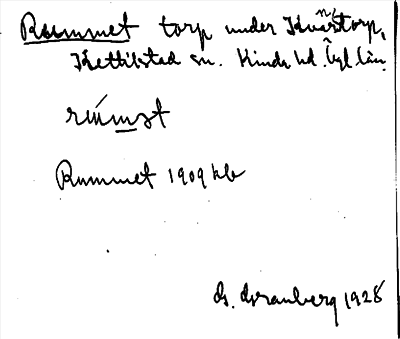 Rummet torp under Kvarntorp,
Kettilstad sn. Kinds hd. Ögl. län.
rúmət
Rummet 1909 kb
G. Granberg 1928